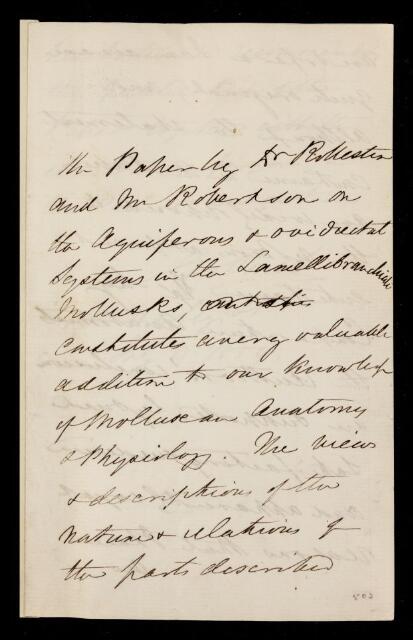 The Paper by Dr Rolleston
and Mr Robertson on
the Aquiferous & oviductal
Systems in the Lamellibranchiate
Mollusks,
constitutes a very valuable
addition to our knowledge
of Molluscan Anatomy
& Physiology. The views
& descriptions of the
nature & relations of
the parts described